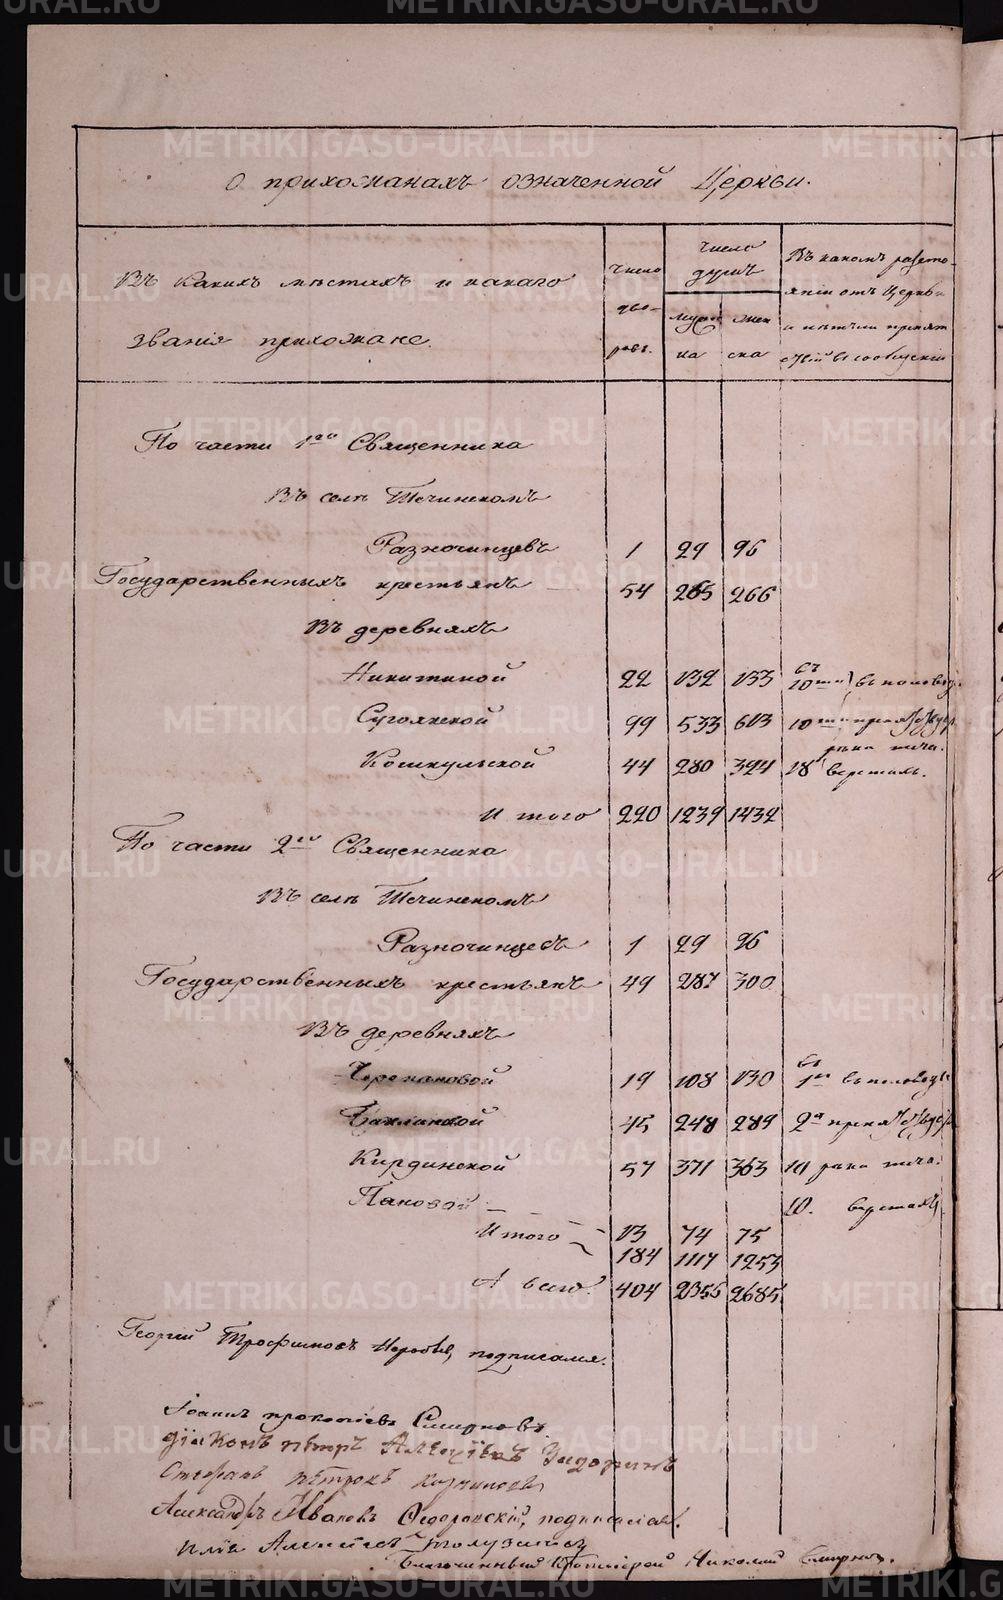 О прихожанахъ означенной Церкви.
Въ какихъ мѣстахъ и какаго
званія прихожане.
Число
дво-
ровъ.
Число
душъ
мужес
ка
жен
ска
Въ какомъ разсто-
яніи отъ Церкви
и нѣтъ ли препят
ствій въ сообщеніи
По части 1го Священника
Въ селѣ Теченскомъ
Разночинцевъ 1 29 26
Государственныхъ крестьянъ 54 265 266
Въ деревняхъ
Никитиной 22 132 133 въ 10ти въ половод.
Сугоякской 99 533 603 10ти
рѣка теча.
Кошкульской 44 280 394 18 верстахъ.
Итого 220 1239 1432
По части 2го Священника
Въ селѣ Теченскомъ
Разночинцевъ 1 29 26
Государственныхъ крестьянъ 49 287 300
Въ деревняхъ
Черепановой 19 108 130 въ 1й въ половодье
Баклановой 45 248 289 2х
Кирдинской 57 371 363 10 рѣка теча.
Пановой 10. верстахъ
Итого 13 74 75
184 1117 1253
А всего. 404 2356 2685
Георгій Трофимовъ подписался.
Іоаннъ Прокопіевъ Смирновъ
Діаконъ Петръ Алексіевъ
Стефанъ Петровъ
Александръ Ивановъ Ѳедоровскій, подписался.
Илія Алексіевъ
Благочинный Протоіерей Николай Смирновъ.
METRIKI.GASO-URAL.RU